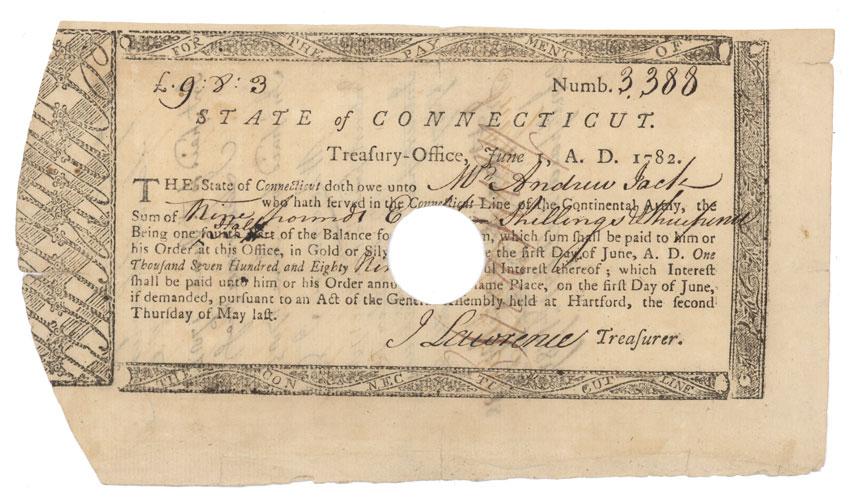 FOR THE PAYMENT OF
£.9:8:3 Numb. 3,388
STATE of CONNECTICUT.
Treaſury-Office, June 1, A. D. 1782.
THE State of Connecticut doth owe unto Mr. Andrew Jack
who hath ſerved in the Connecticut Line of the Continental Army, the
Sum of Nine pounds Shillings & threepence
Being one fourth part of the Balance which ſum ſhall be paid to him or
his Order at this Office, in Gold or the firſt Day of June, A. D. One
Thouſand Seven Hundred and Eighty Intereſt thereof; which Intereſt
ſhall be paid unto him or his Order Place, on the firſt Day of June,
if demanded, purſuant to an Act of the held at Hartford, the ſecond
Thurſday of May laſt.
J Lawrence Treaſurer.
THE CONNECTICUT LINE